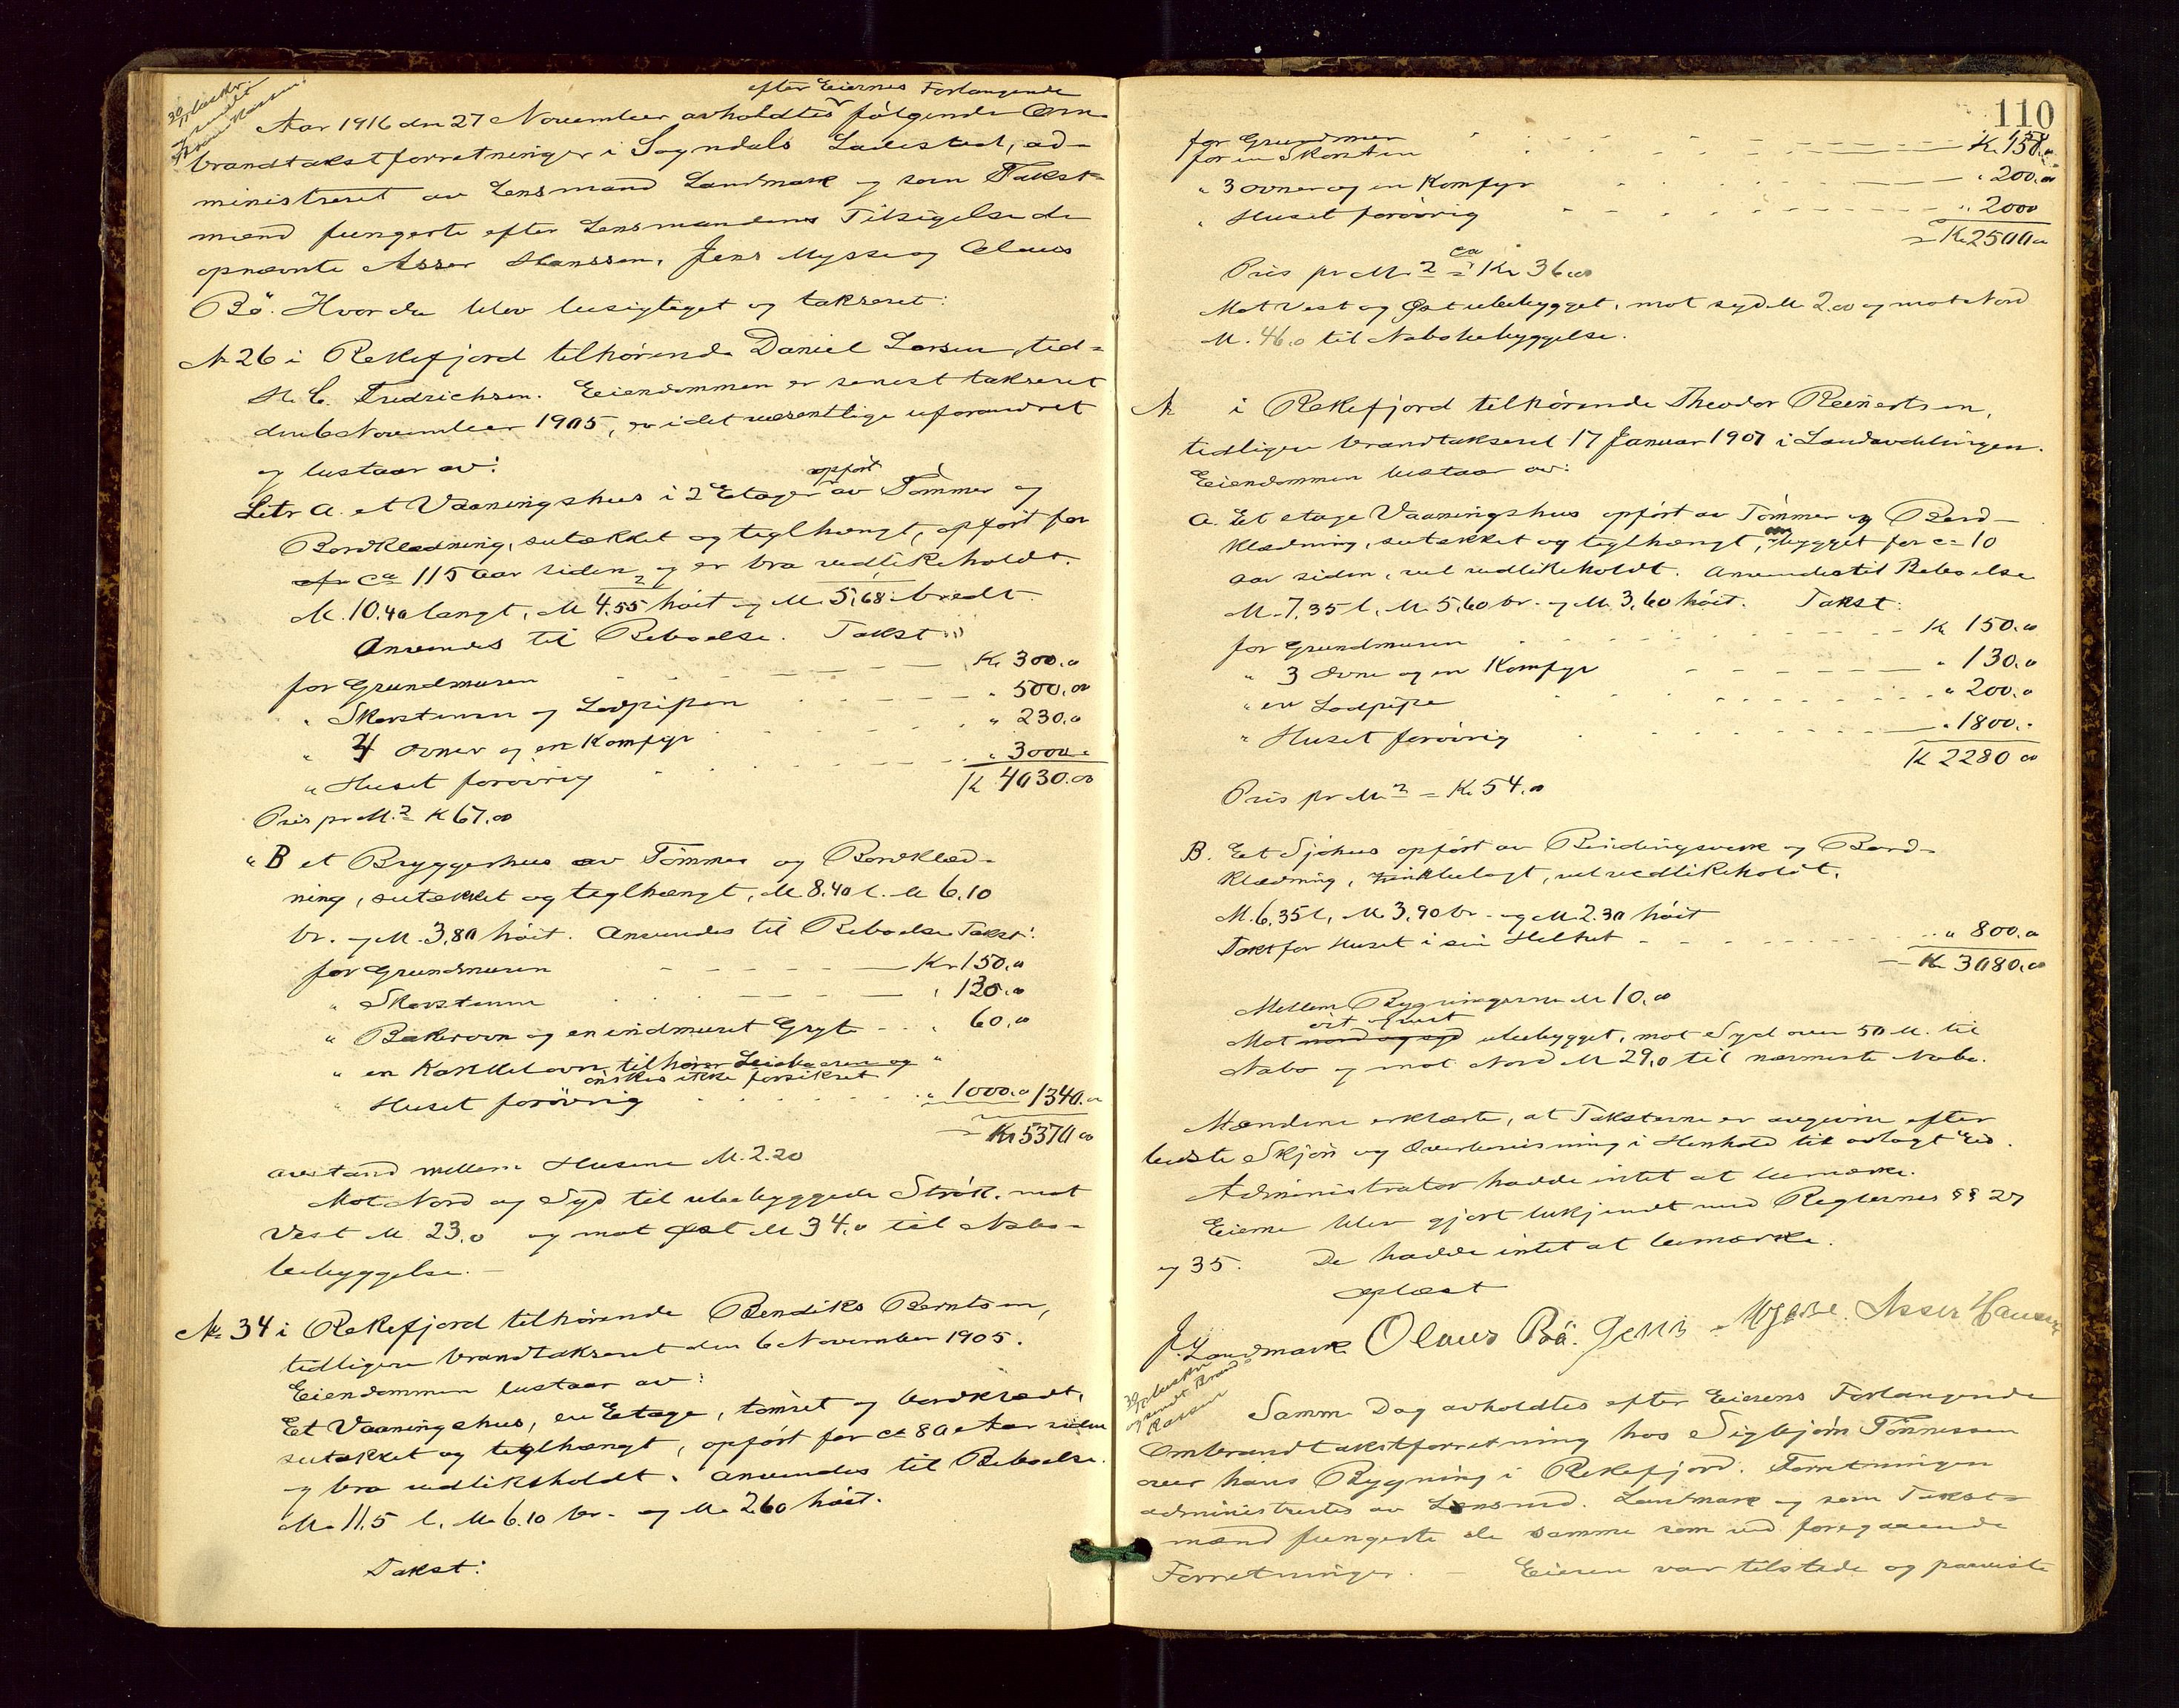 efter Eiernes Forlangende
Aar 1916 den 27 November avholdtes følgende Om-
brandtakstforretninger i Sogndals Ladested, ad-
ministreret av Lensmand Landmark og som Takst-
mænd fungerte efter Lensmandens Tilsigelse de
opnævnte Asser Hanssen, Jens Mysse og Olaus
Bö. Hvor da blev besigtiget og takseret:
No 26 i Rekefjord tilhørende Daniel Larsen, tid-
H. C. Fredrichsen. Eiendommen er senest takseret
den 6 November 1905, er i det væsentlige uforandret
og bestaar av:
Litr A. et Vaaningshus i 2 Etager opført av Tømmer og
Bordklædning, sutækket og teglhængt, opført for
ca 115 aar siden og er bra vedlikeholdt.
M. 10.40 langt, M 4.55 høit og M. 5,68 bredt.
Anvendes til Beboelse. Takst:
for Grundmuren Kr 300.0
" Skorstenen og Lodpipen " 500.00
" 4 Ovner og en Komfyr " 230.0
" Huset forøvrig " 3000.
Kr 4030.00
Pris pr M.2 K 67.00
" B et Bryggerhus av Tømmer og Bordklæd-
ning, sutækket og teglhængt, M. 8.40 l. M 6.10
br. og M. 3,80 høit. Anvendes til Beboelse Takst:
for Grundmuren Kr 150.0
" Skorstenen " 130.0
" Bakerovn og en indmuret Gryte " 60.0
" en Kakkelovn tilhører Leieboeren og "
ønskes ikke forsikret
" Huset forøvrig " 1000.0 1340.0
= Kr 5370 00
Avstand mellem Husene M. 2.20
Mot Nord og Syd til ubebyggede Strøk. mot
Vest M. 23.0 og mot Øst M 34.0 til Nabo-
bebyggelse. -
No 34 i Rekefjord tilhørende Bendiks Berntsen,
tidligere brandtakseret den 6 November 1905.
Eiendommen bestaar av:
Et Vaaningshus, en Etage, tømret og bordklædt,
sutækket og teglhængt, opført for ca 80 Aar siden
og bra vedlikeholdt. Anvendes til Beboelse.
M. 11.5 l. M. 6.10 br. og M. 2.60 høit.
Takst:
110
for Grundmuren K. 150.
for en Skorsten
" 3 ovner og en Komfyr " 200.00
" Huset forøvrig " 2000
= Kr 2500 00
Pris pr M. 2 = ca Kr 36.00
Mot Vest og Øst ubebygget, mot syd M 2.00 og mot Nord
M. 46.0 til Nabobebyggelse.
No i Rekefjord tilhørende Theodor Reinertsen,
tidligere brandtakseret 17 Januar 1907 i Landavdelingen.
Eiendommen bestaar av:
A. Et etage Vaaningshus opført av Tømmer og Bord-
klædning, sutækket og teglhængt, bygget for ca 10
aar siden, vel vedlikeholdt. Anvendes til Beboelse
M. 7,35 l, M. 5,60 br. og M. 3,60 høit. Takst:
for Grundmuren Kr 150.0
" 3 Ovne og en Komfyr " 130.0
" en Lodpipe " 200.0
" Huset forøvrig " 1800.
K 2280 00
Pris pr M.2 = Kr 54.0
B. Et Sjøhus opført av Bindingsverk og Bord-
klædning, zinkbelagt, vel vedlikeholdt.
M. 6,35 l, M. 3,90 br. og M. 2.30 høit
Takst for Huset i sin Helhet " 800.0
Kr 3080.00
Mellem Bygningerne M 10.00
øst og vest
Mot nord og syd ubebygget, mot Syd over 50 M. til
Nabo og mot Nord M 29,0 til nærmeste Nabo.
Mændene erklærte, at Taksterne er avgivne efter
bedste Skjøn og Overbevisning i Henhold til avlagt Ed.
Administrator hadde intet at bemærke.
Eierne blev gjort bekjendt med Reglernes §§ 27
og 35. De hadde intet at bemærke.
oplæst
J. Landmark Olaus Bö. Jens Mysse. Asser Hansen
Samme Dag avholdtes efter Eierens Forlangende
Ombrandtakstforretning hos Sigbjørn Tønnessen
over hans Bygning i Rekefjord. Forretningen
administrertes av Lensmd. Landmark og som Takst-
mænd fungerte de samme som ved foregaaende
Forretninger. - Eieren var tilstede og paaviste